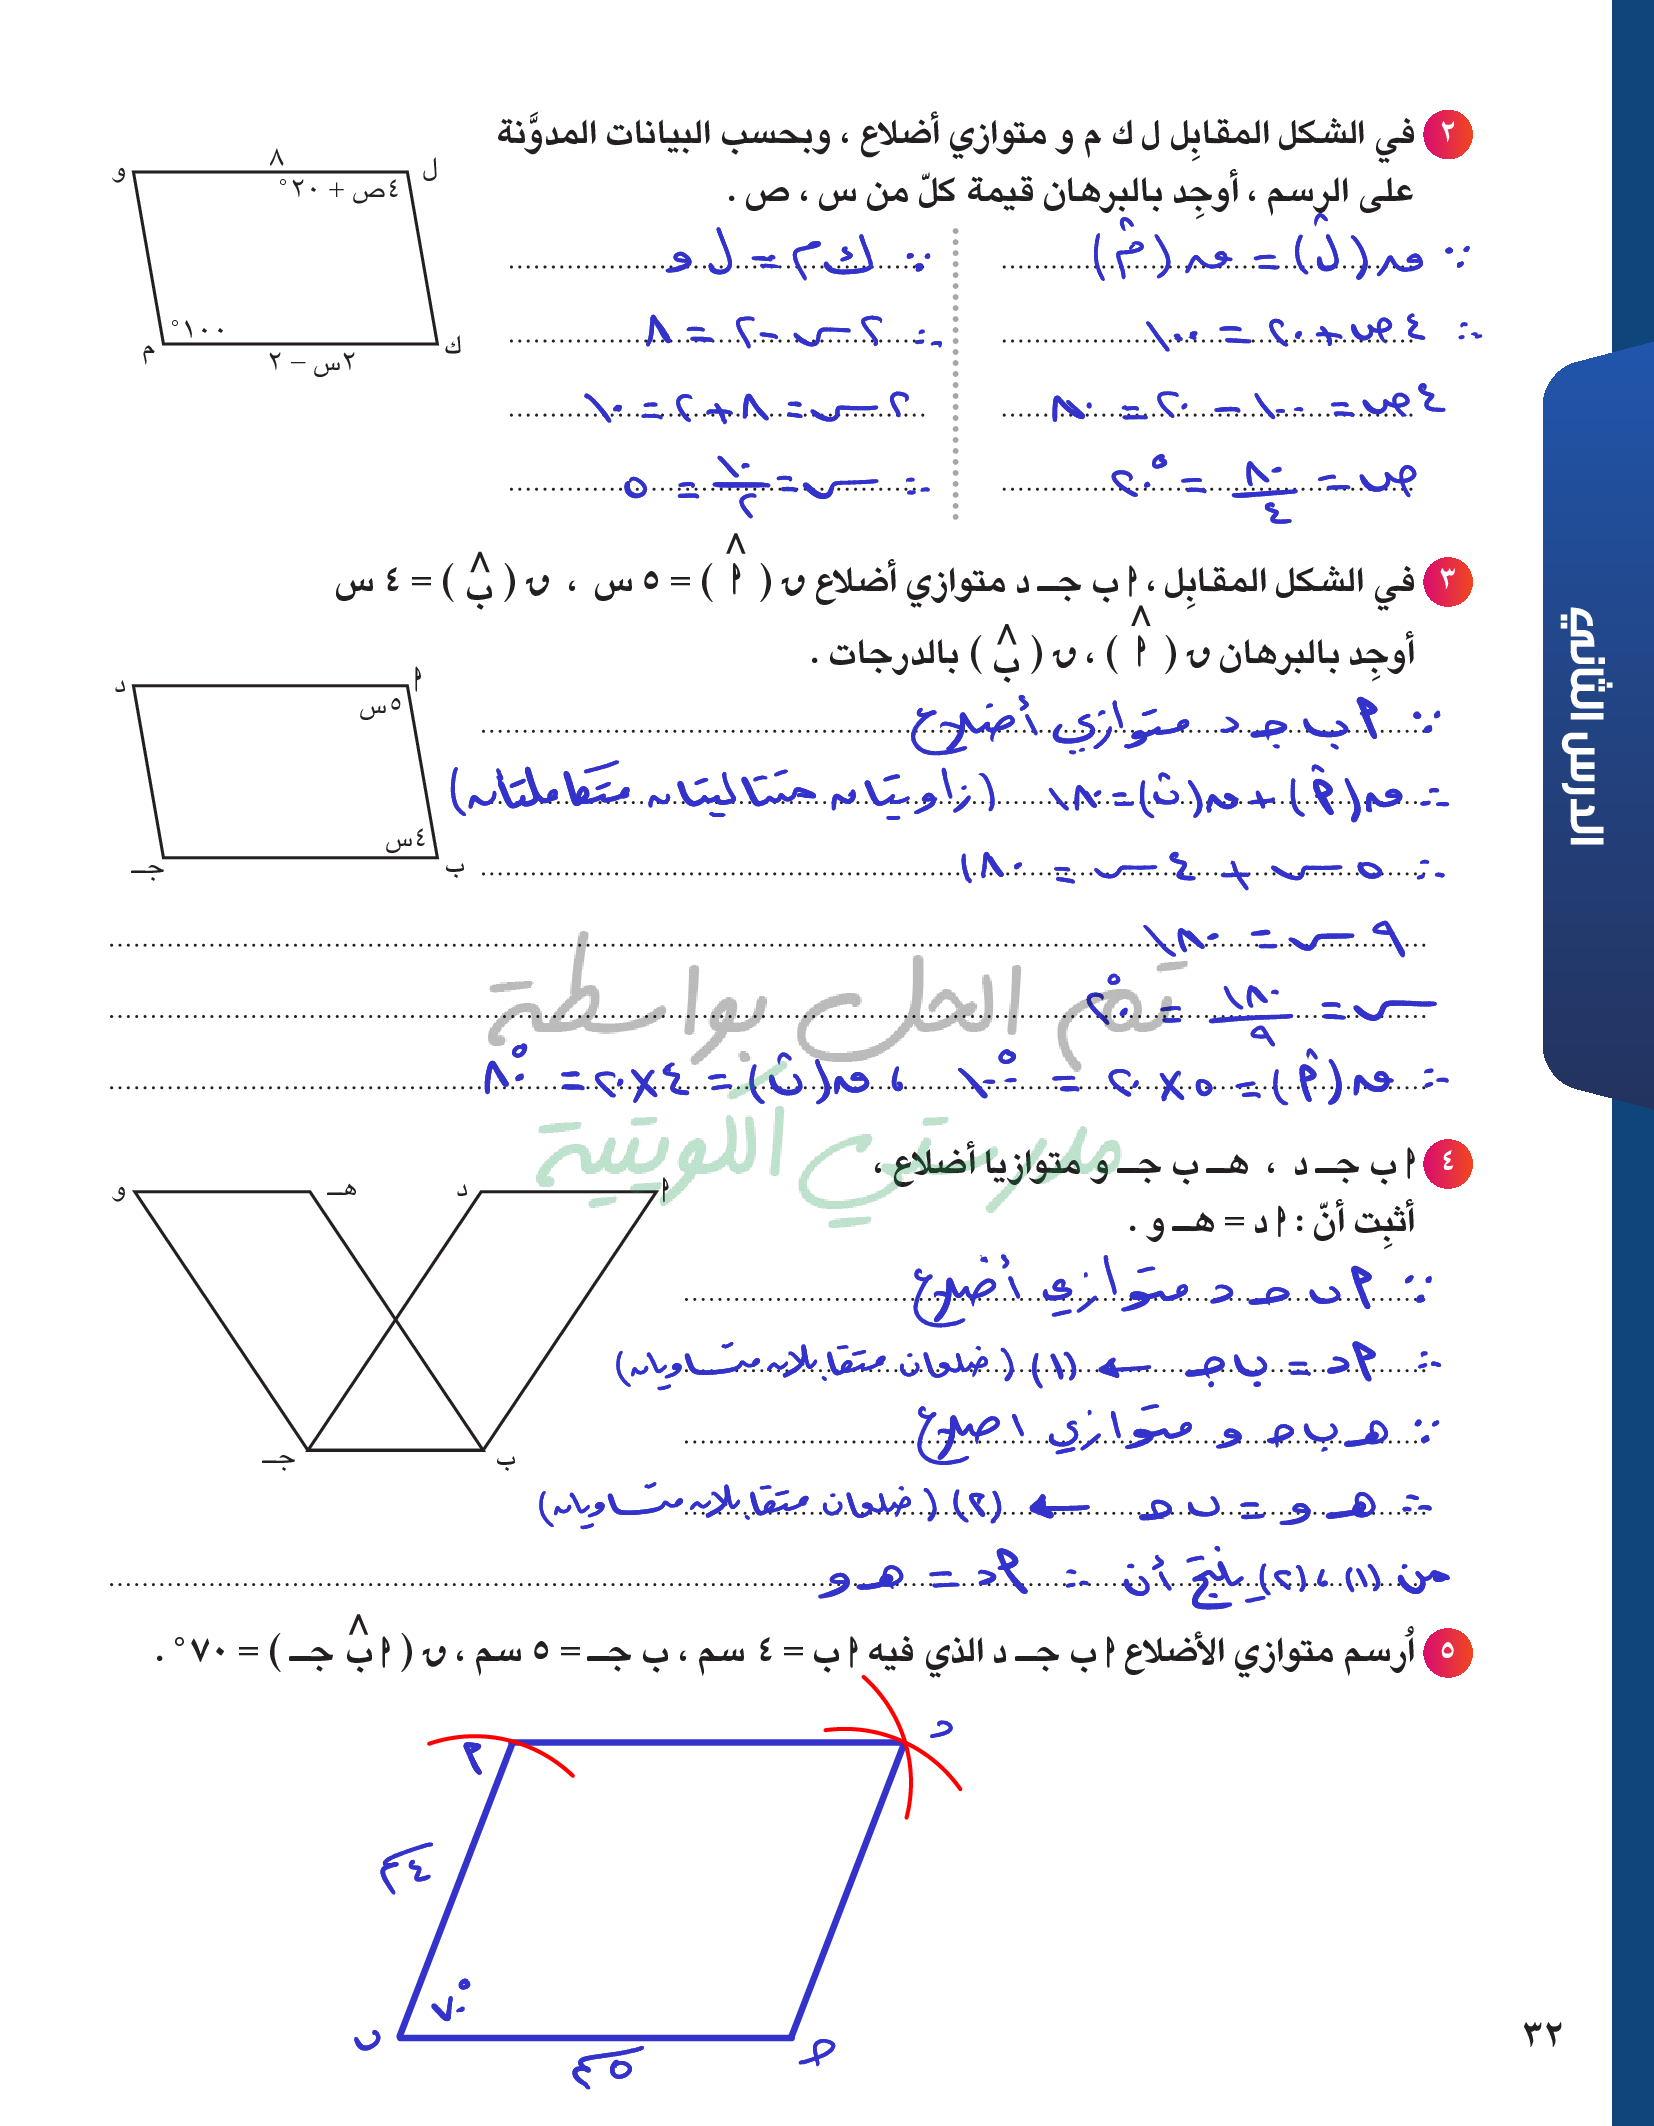 الدرس الثاني
٢ في الشكل المقابِل ل ك م و متوازي أضلاع ، وبحسب البيانات المدوَّنة
على الرسم ، أوجِد بالبرهان قيمة كلّ من س ، ص .
٨
و
ل
٤ص + ٢٠°
١٠٠°
م
ك
٢س − ٢
∵ ق(ل̂) = ق(م̂)
∴ ٤ص + ٢٠ = ١٠٠
٤ص = ١٠٠ − ٢٠ = ٨٠
ص = ٨٠/٤ = ٢٠°
∵ ك م = ل و
∴ ٢س − ٢ = ٨
٢س = ٨ + ٢ = ١٠
∴ س = ١٠/٢ = ٥
٣ في الشكل المقابِل ، ٲ ب جـ د متوازي أضلاع ق(ٲ̂) = ٥ س ، ق(ب̂) = ٤ س
أوجِد بالبرهان ق(ٲ̂) ، ق(ب̂) بالدرجات .
د
ٲ
٥س
٤س
جـ
ب
∵ ٲ ب جـ د متوازي أضلاع
∴ ق(ٲ̂) + ق(ب̂) = ١٨٠ (زاويتان متتاليتان متكاملتان)
∴ ٥س + ٤س = ١٨٠
٩س = ١٨٠
س = ١٨٠/٩ = ٢٠°
∴ ق(ٲ̂) = ٥ × ٢٠ = ١٠٠° ، ق(ب̂) = ٤ × ٢٠ = ٨٠°
تم الحل بواسطة
مدرستي الكويتية
٤ ٲ ب جـ د ، هـ ب جـ و متوازيا أضلاع ،
أثبِت أنّ : ٲ د = هـ و .
و
هـ
د
ٲ
جـ
ب
∵ ٲ ب جـ د متوازي أضلاع
∴ ٲ د = ب جـ ← (١) (ضلعان متقابلان متساويان)
∵ هـ ب جـ و متوازي اضلاع
∴ هـ و = ب جـ ← (٢) (ضلعان متقابلان متساويان)
من (١) ، (٢) ينتج أن ∴ ٲ د = هـ و
٥ اُرسم متوازي الأضلاع ٲ ب جـ د الذي فيه ٲ ب = ٤ سم ، ب جـ = ٥ سم ، ق(ٲ ب̂ جـ) = ٧٠° .
ٲ
د
٤سم
٧٠°
ب
جـ
٥سم
٣٢